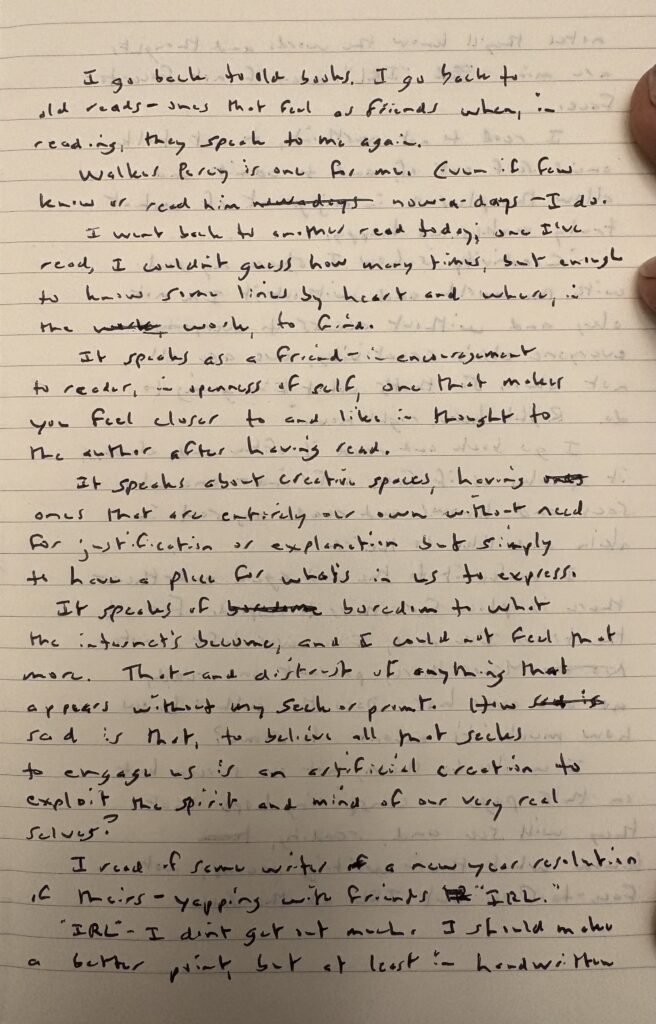 I go back to old books. I go back to
old reads - ones that feel as friends when, in
reading, they speak to me again.
Walker Percy is one for me. Even if few
know or read him nowadays now-a-days - I do.
I went back to another read today; one I've
read, I couldn't guess how many times, but enough
to know some lines by heart and where, in
the work, work, to find.
It speaks as a friend - in encouragement
to reader, in openness of self, one that makes
you feel closer to and like in thought to
the author after having read.
It speaks about creative spaces, having ones
ones that are entirely our own without need
for justification or explanation but simply
to have a place for what's in us to express.
It speaks of boredome boredom to what
the internet's become, and I could not feel that
more. That - and distrust of anything that
appears without my seek or promt. How sad is
sad is that, to believe all that seeks
to engage us is an artificial creation to
exploit the spirit and mind of our very real
selves?
I read of some writer of a new year resolution
of theirs - yapping with friends "IRL."
"IRL" - I don't get out much. I should make
a better point, but at least in handwritten